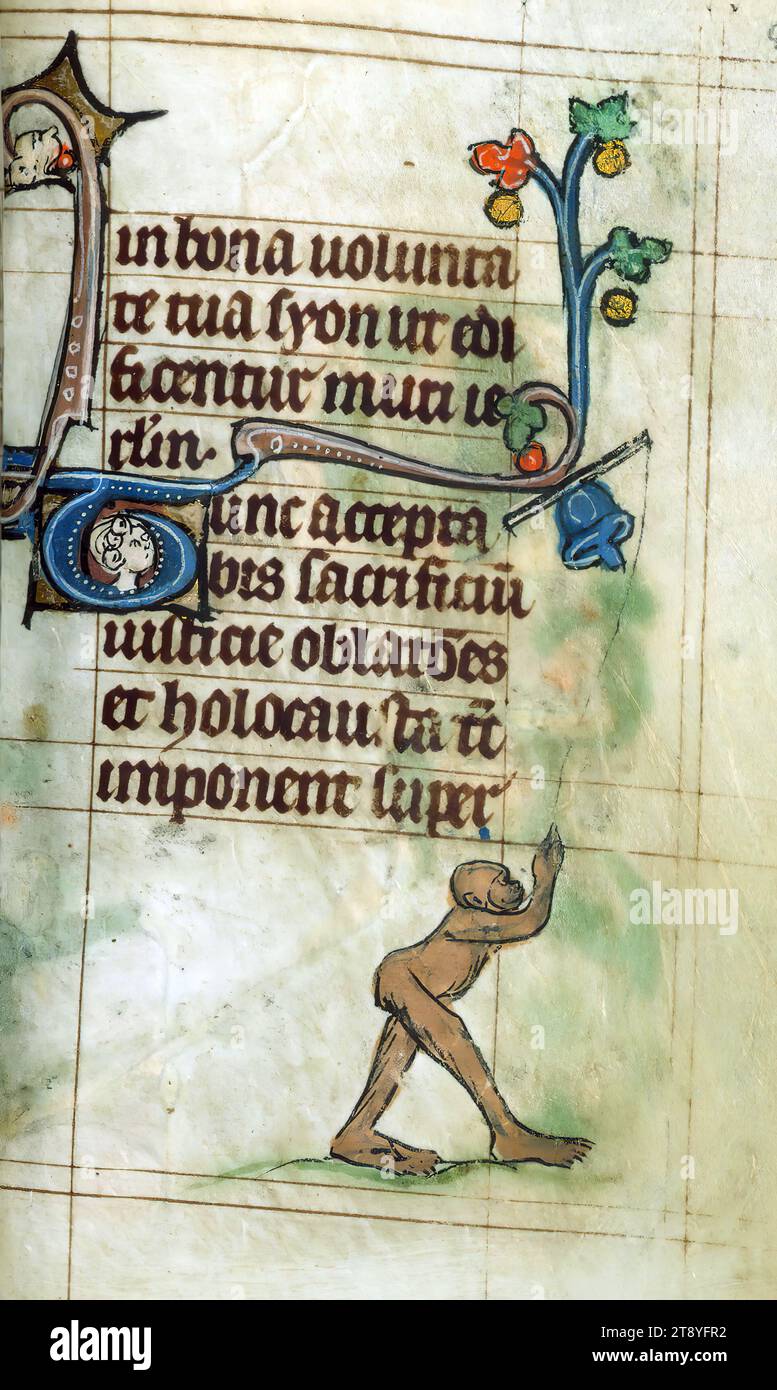 in bona uolunta
te tua syon ut edi
ficentur muri ie
rlm̄.
Tunc accepta
bis sacrificiū
iusticie oblatōes
et holocausta tc̄
imponent super
alamy
alamy
alamy
Image ID: 2T8YFR2
www.alamy.com